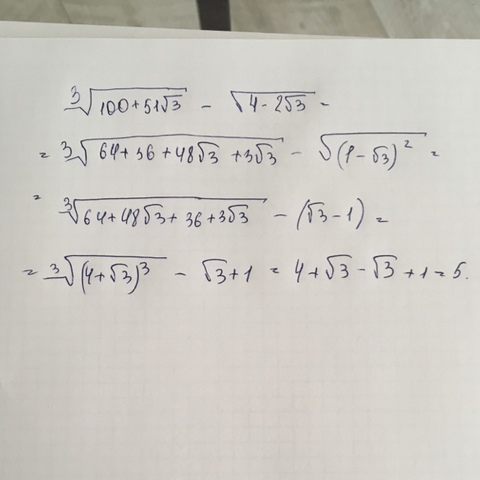 ∛(100+51√3) − √(4−2√3) =
= ∛(64+36+48√3+3√3) − √((1−√3)²) =
= ∛(64+48√3+36+3√3) − (√3−1) =
= ∛((4+√3)³) − √3+1 = 4+√3−√3+1=5.